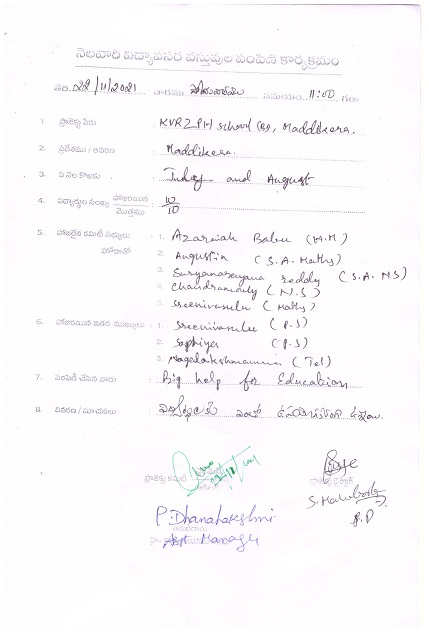 నెలవారి విద్యావసర వస్తువుల పంపిణి కార్యక్రమం
తేది: 22/11/2021 వారము సోమవారము సమయం 11:00 గం
1. ప్రాజెక్టు పేరు KVRZPH school (G), Maddikera.
2. ప్రదేశము / ఆవరణ Maddikera.
3. ఏ నెల కొఱకు July and August
4. విద్యార్థుల సంఖ్య హాజరయిన / మొత్తము 10/10
5. హాజరైన కమిటీ సభ్యులు : 1. Azaraiah Babu (H.M)
హోదాతో 2. Augustin (S.A. Maths)
3. Suryanarayana reddy (S.A NS)
4. Chandramouly (N.S)
5. Sreenivasulu (Maths)
6. హాజరయిన ఇతర ముఖ్యులు : 1. Sreenivasulu (P.S)
2. Sophiya (P.S)
3. Nagalakshmamma (Tel)
7. పంపిణి చేసిన వారు : Big help for Education
8. వివరణ / సూచనలు : విద్యార్థులకు ఎంతో ఉపయోగకరంగా ఉన్నాయి.
ప్రాజెక్టు కమిటీ
P. Dhanalakshmi
Asst Manager